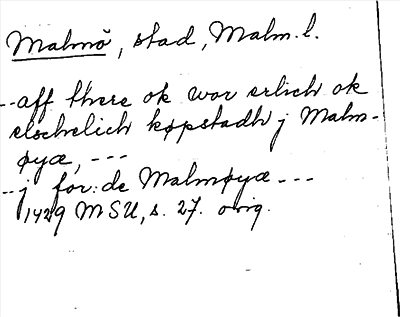 Malmö, stad, Malm. l.
--aff there ok wor erlich ok
elschelich køpstadh j Malm-
øyæ, ---
--j for:de Malmøyæ ---
1429 MSU, s. 27. orig.